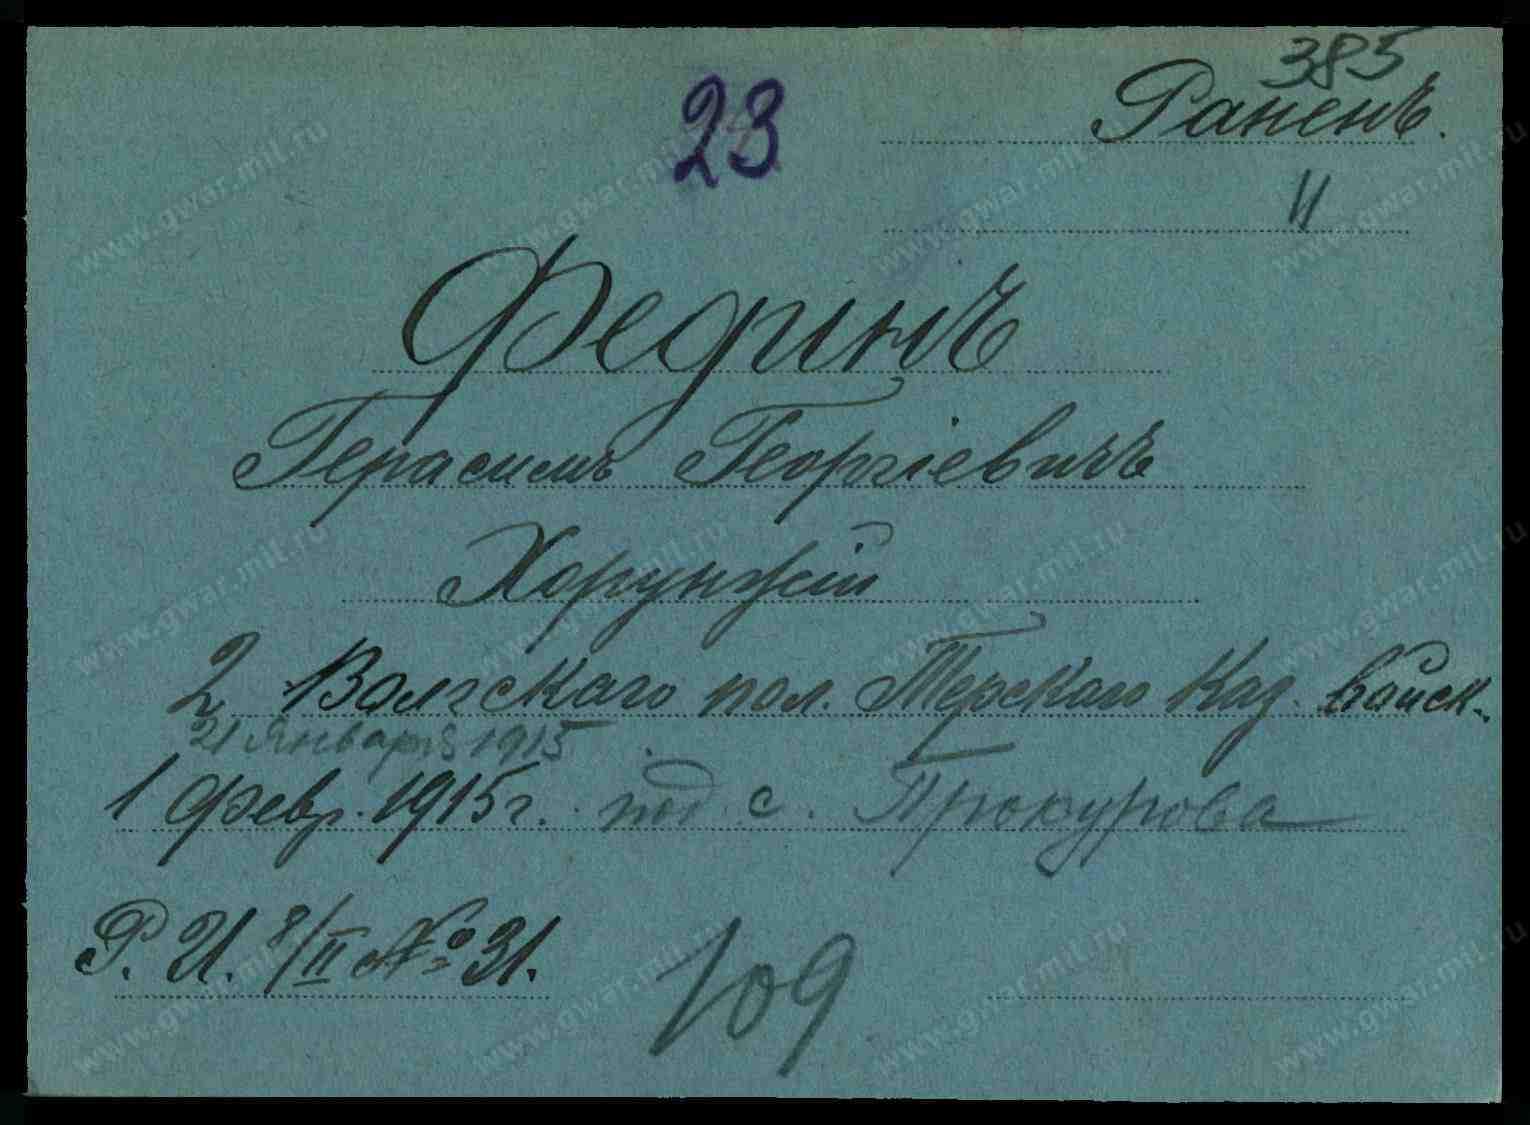 385
23
Раненъ.
II
Фединъ
Герасимъ Георгіевичъ
Хорунжій
2 Волгскаго пол. Терскаго Каз. войск.
21 Января 1915
1 Февр. 1915 г. под с. Прокурова
Р. И. 8/II № 31.
109